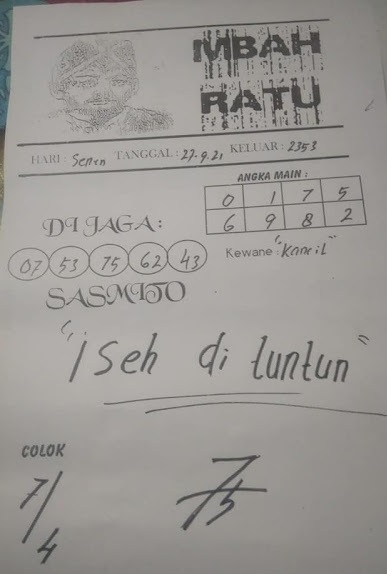 MBAH
RATU
HARI : Senen TANGGAL : 27.9.21 KELUAR : 2353
ANGKA MAIN :
0 1 7 5
6 9 8 2
DI JAGA :
07 53 75 62 43
Kewane : "Kancil"
SASMITO
"iseh di tuntun"
COLOK
7/4
7/5